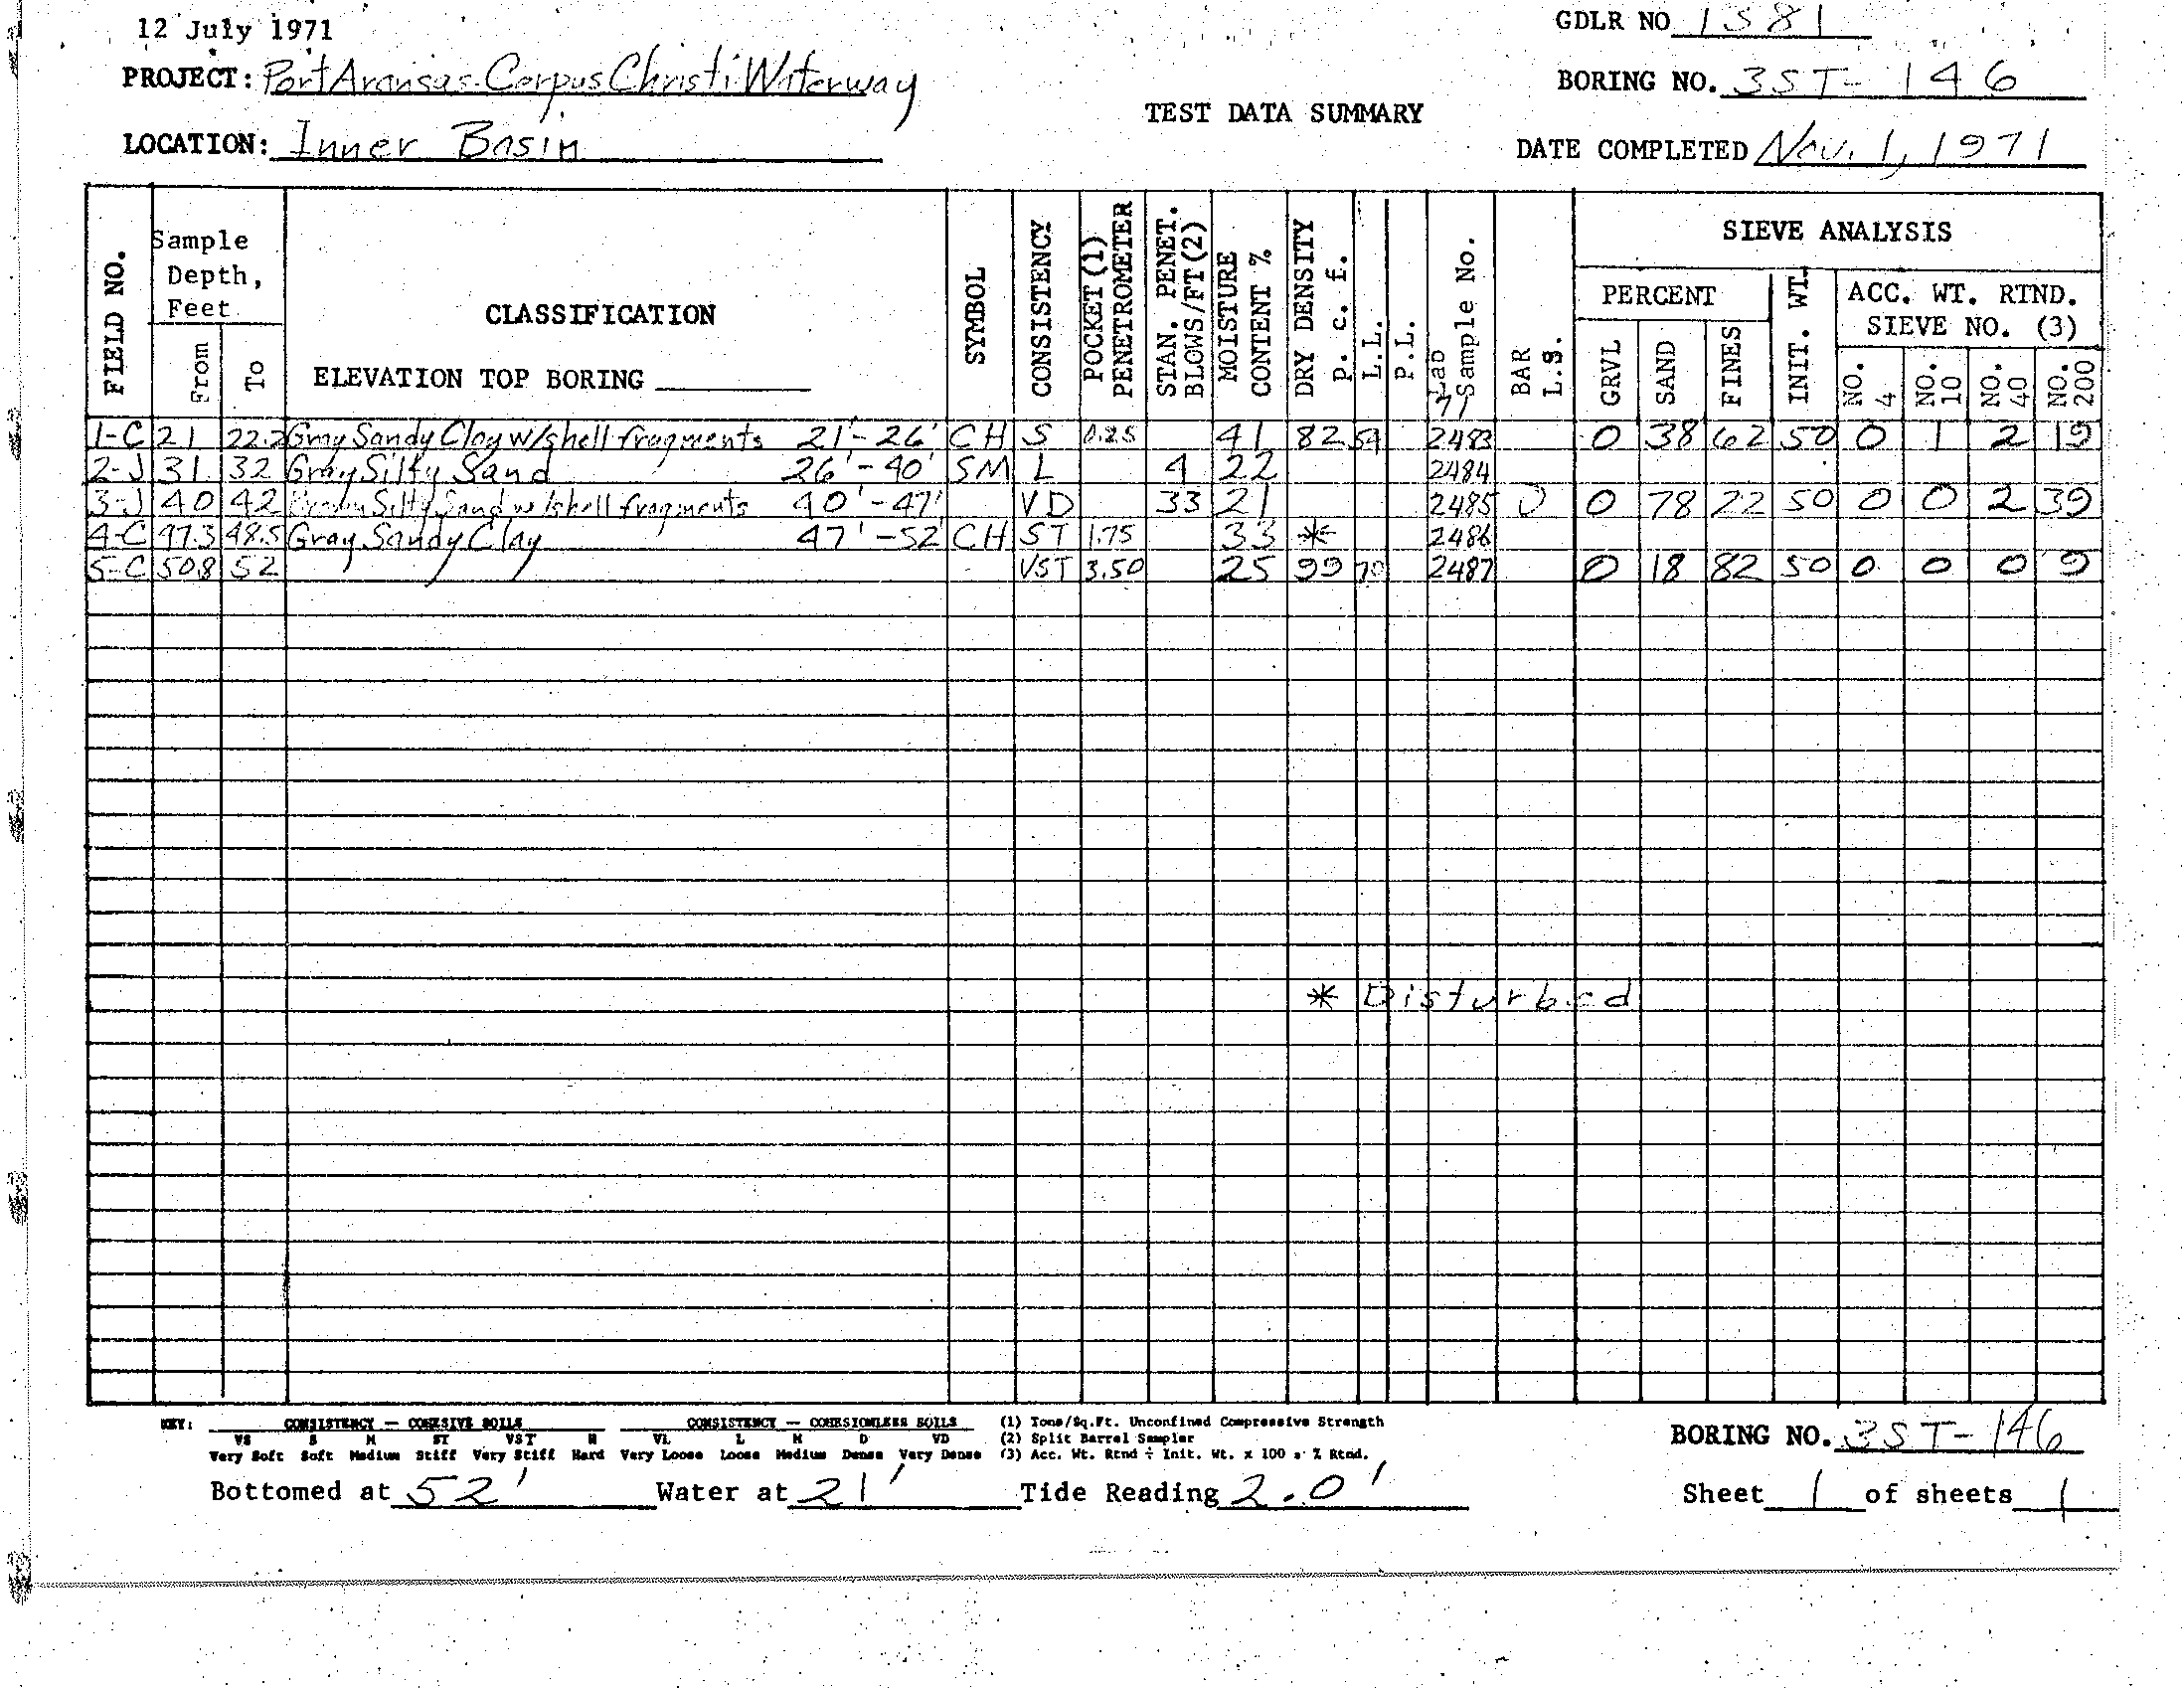 12 July 1971
GDLR NO 1381
PROJECT: Port Aransas-Corpus Christi Waterway
BORING NO. 3ST-146
TEST DATA SUMMARY
LOCATION: Inner Basin
DATE COMPLETED Nov. 1, 1971
FIELD NO.
Sample Depth, Feet
From
To
CLASSIFICATION
ELEVATION TOP BORING
SYMBOL
CONSISTENCY
POCKET (1) PENETROMETER
STAN. PENET. BLOWS/FT(2)
MOISTURE CONTENT %
DRY DENSITY P. c. f.
L.L.
P.L.
Lab Sample No.
71
BAR L.S.
SIEVE ANALYSIS
PERCENT
GRVL
SAND
FINES
INIT. WT.
ACC. WT. RTND. SIEVE NO. (3)
NO. 4
NO. 10
NO. 40
NO. 200
1-C 21 22.2 Gray Sandy Clay w/shell fragments 21'-26' CH S 0.25 41 82 59 2483 0 38 62 50 0 1 2 19
2-J 31 32 Gray Silty Sand 26'-40' SM L 4 22 2484
3-J 40 42 Brown Silty Sand w/shell fragments 40'-47' VD 33 21 2485 0 0 78 22 50 0 0 2 39
4-C 47.3 48.5 Gray Sandy Clay 47'-52' CH ST 1.75 33 * 2486
5-C 50.8 52 VST 3.50 25 99 70 2487 0 18 82 50 0 0 0 9
* Disturbed
KEY: CONSISTENCY — COHESIVE SOILS CONSISTENCY — COHESIONLESS SOILS (1) Tons/Sq.Ft. Unconfined Compressive Strength
VS S M ST VST H VL L M D VD (2) Split Barrel Sampler
Very Soft Soft Medium Stiff Very Stiff Hard Very Loose Loose Medium Dense Very Dense (3) Acc. Wt. Rtnd ÷ Init. Wt. x 100 = % Rtnd.
BORING NO. 3ST-146
Bottomed at 52' Water at 21' Tide Reading 2.0' Sheet 1 of sheets 1